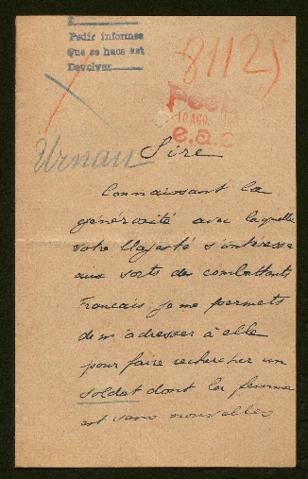 Pedir informes
Que se hace est
Devolver
81125
10 AGO.
e.a.c
Urnau
Sire
Connaissant la
générosité avec laquelle
votre Majesté s'intéresse
aux sorts des combattants
Français, je me permets
de m'adresser à elle
pour faire rechercher un
soldat dont la femme
est sans nouvelles